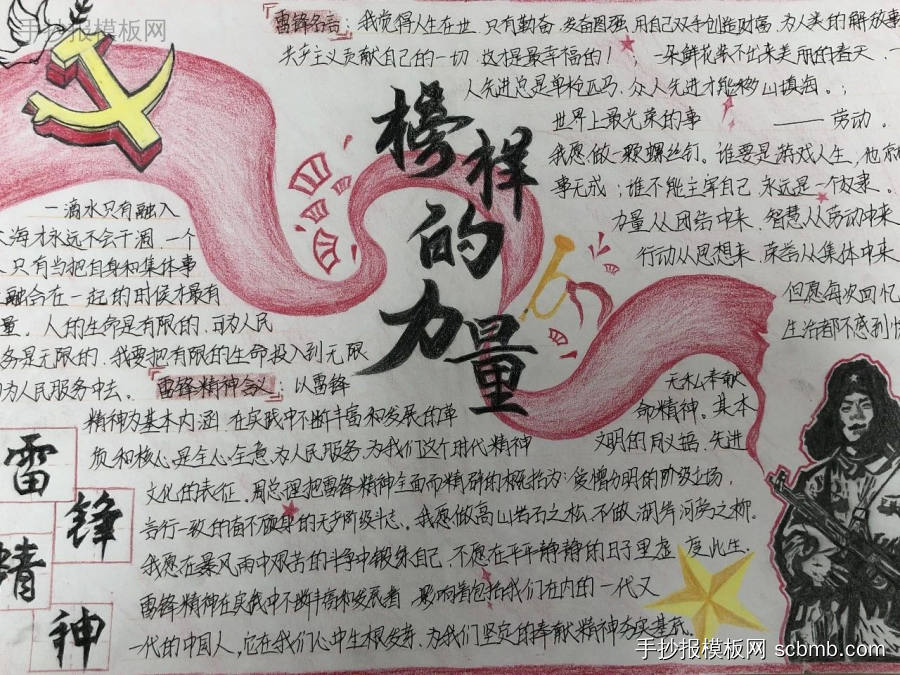 手抄报模板网
雷锋名言：我觉得人生在世，只有勤奋，发奋图强，用自己双手创造财富，为人类的解放事
共产主义贡献自己的一切，这才是最幸福的！；一朵鲜花装不出来美丽的春天，一
人先进总是单枪匹马，众人先进才能移山填海。；
世界上最光荣的事——劳动。
我愿做一颗螺丝钉。谁要是游戏人生，他就
事无成；谁不能主宰自己，永远是一个奴隶。
力量从团结中来，智慧从劳动中来
行动从思想来，荣誉从集体中来
但愿每次回忆
生活都不感到
榜样的力量
一滴水只有融入
海才永远不会干涸，一个
人只有当把自身和集体事
融合在一起的时候才最有
量。人的生命是有限的，可为人民
务是无限的，我要把有限的生命投入到无限
的为人民服务中去。雷锋精神含义：以雷锋 无私奉献
精神为基本内涵，在实践中不断丰富和发展的革 命精神。其本
质和核心是全心全意为人民服务，为我们这个时代精神 文明的同义语，先进
文化的表征。周总理把雷锋精神全面而精辟的概括为：爱憎分明的阶级立场，
言行一致的 无产阶级斗志。我愿做高山岩石之松，不做湖岸河旁之柳。
我愿在暴风雨中艰苦的斗争中锻炼自己，不愿在平平静静的日子里虚度此生。
雷锋精神在实践中不断丰富和发展着，影响着包括我们在内的一代又
一代的中国人，它在我们心中生根发芽，为我们坚定的奉献精神夯实基底。
雷锋精神
手抄报模板网 scbmb.com